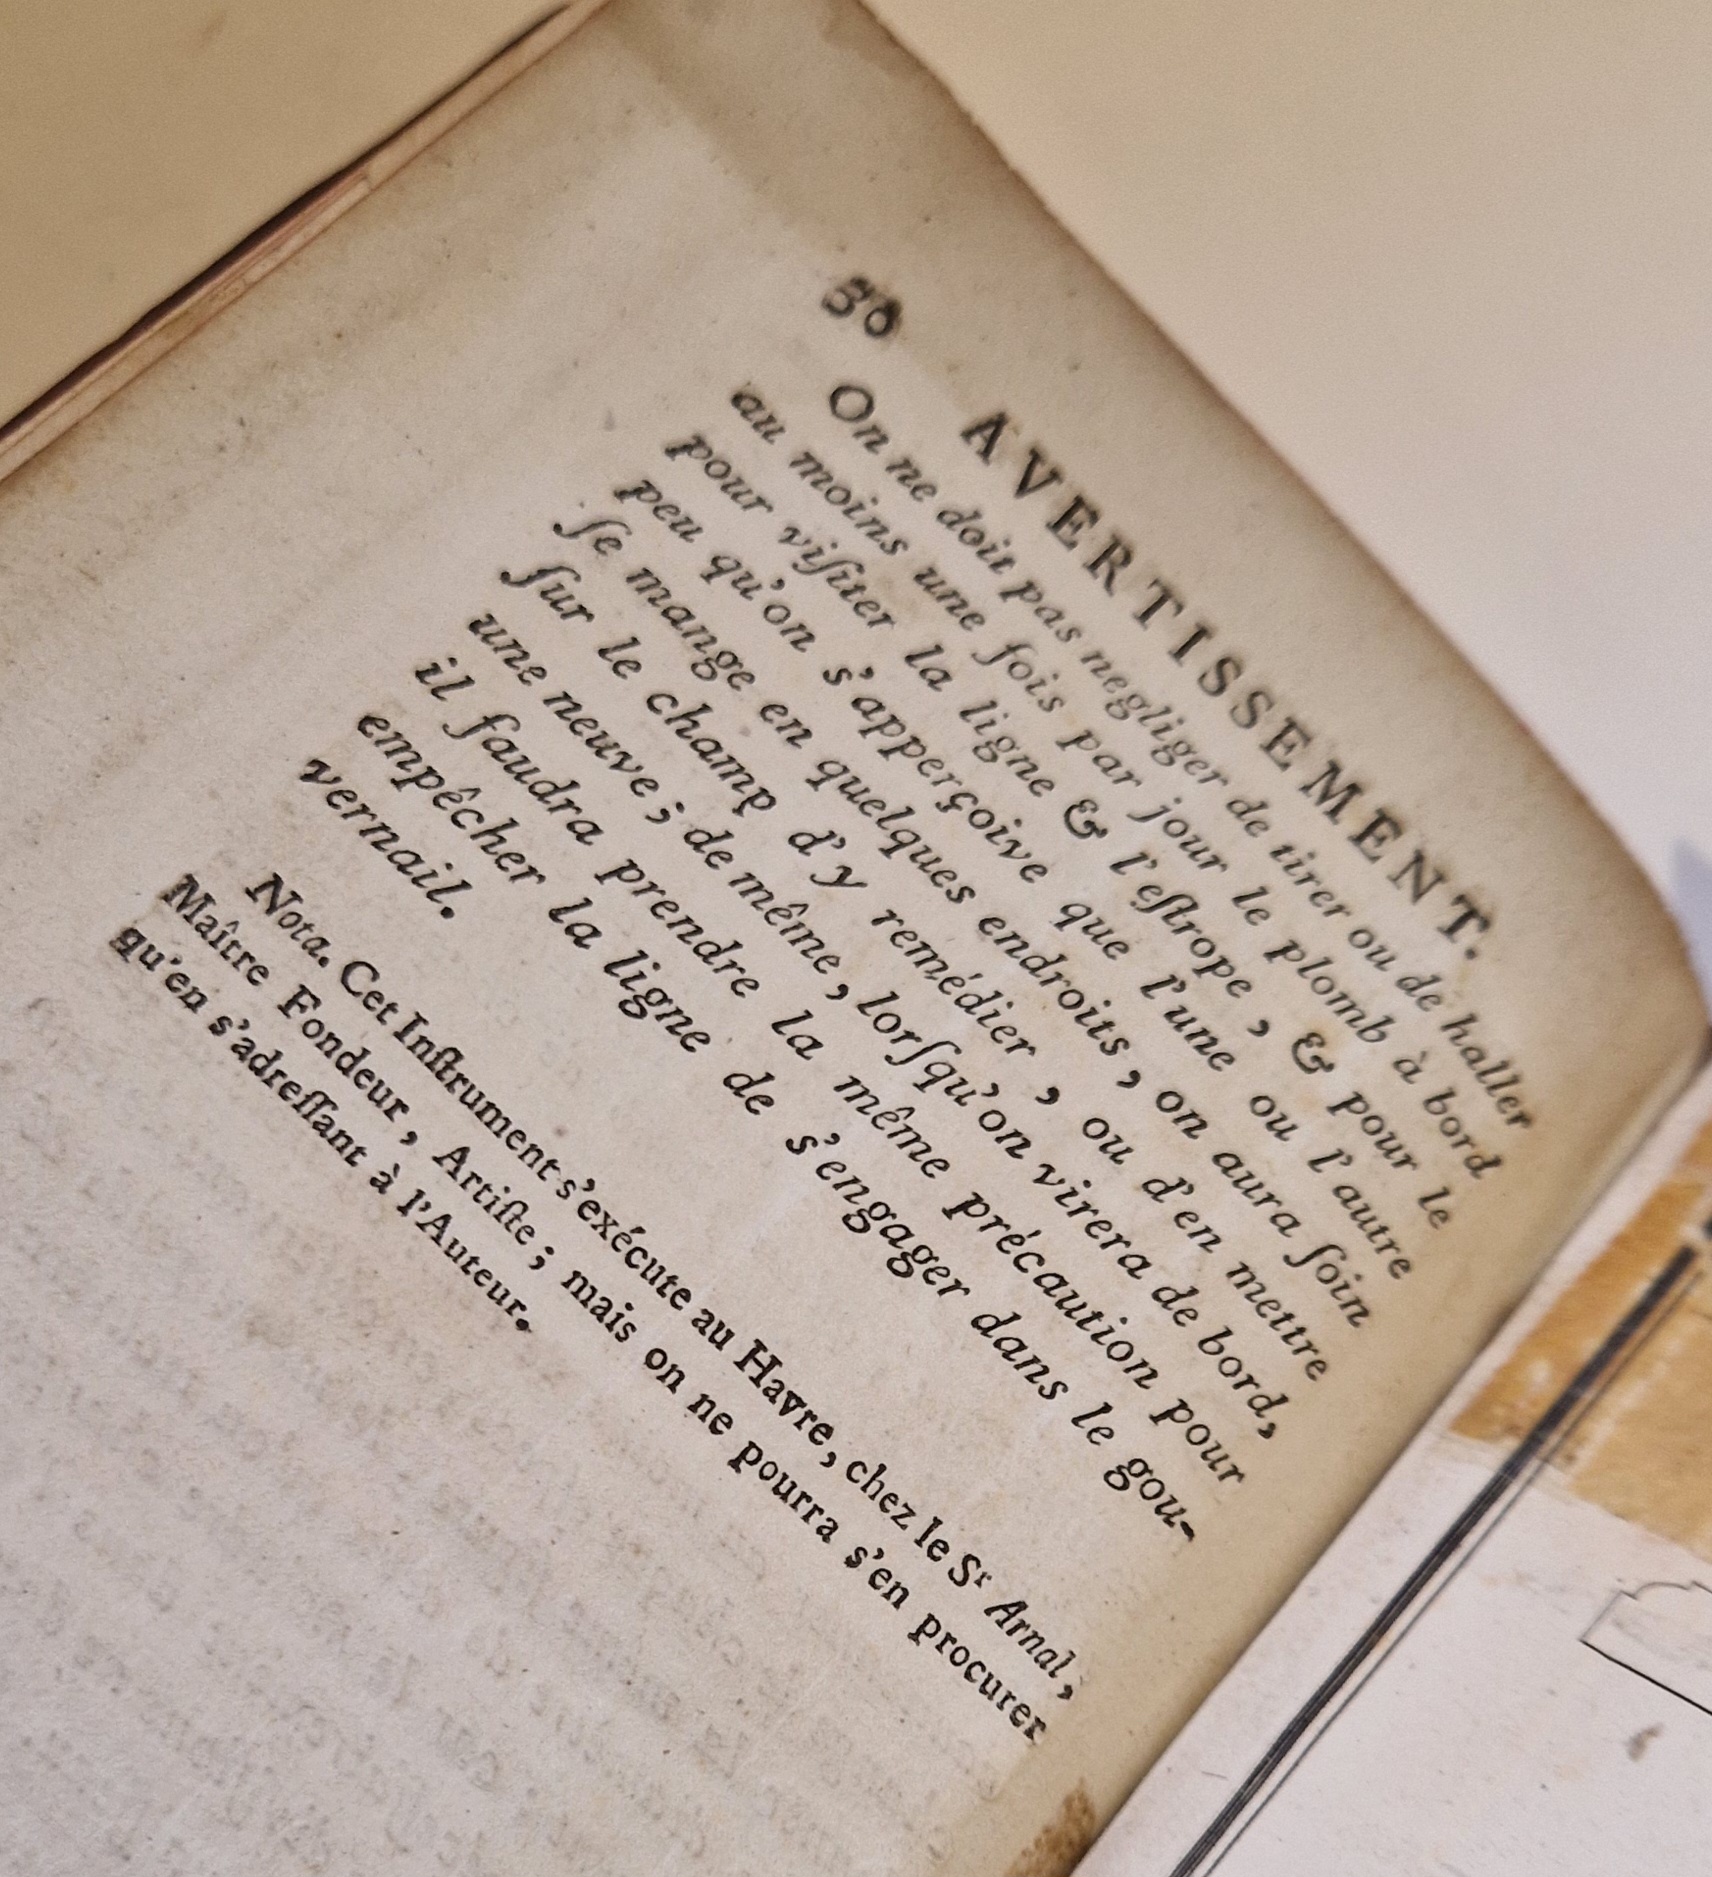 30 AVERTISSEMENT.
On ne doit pas negliger de tirer ou de haller
au moins une fois par jour le plomb à bord
pour viſiter la ligne & l'eſtrope, & pour le
peu qu'on s'apperçoive que l'une ou l'autre
ſe mange en quelques endroits, on aura ſoin
ſur le champ d'y remédier, ou d'en mettre
une neuve; de même, lorſqu'on virera de bord,
il faudra prendre la même précaution pour
empêcher la ligne de s'engager dans le gou-
vernail.
Nota. Cet Inſtrument s'exécute au Havre, chez le Sr Arnal,
Maître Fondeur, Artiſte; mais on ne pourra s'en procurer
qu'en s'adreſſant à l'Auteur.